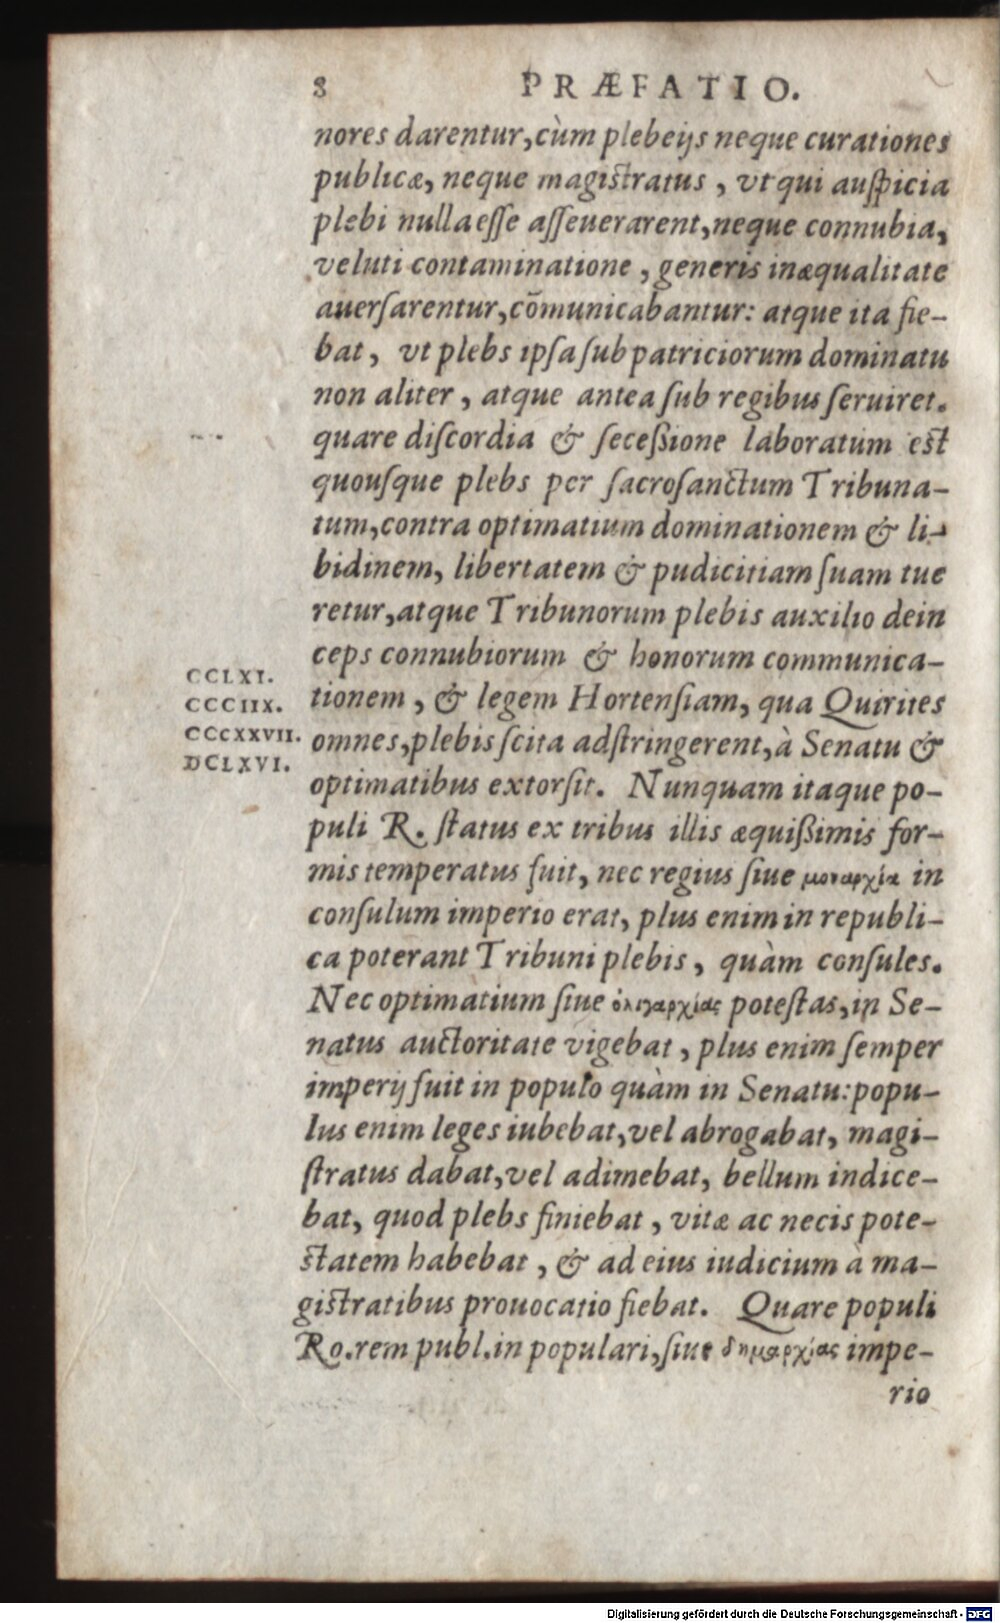 8 PRÆFATIO.
nores darentur, cùm plebeijs neque curationes
publicæ, neque magistratus, vt qui auspicia
plebi nulla eſſe aſſeuerarent, neque connubia,
veluti contaminatione, generis inæqualitate
auerſarentur, cōmunicabantur: atque ita fie-
bat, vt plebs ipſa ſub patriciorum dominatu
non aliter, atque antea ſub regibus ſeruiret.
quare diſcordia & ſeceßione laboratum est
quouſque plebs per ſacroſanctum Tribuna-
tum, contra optimatium dominationem & li-
bidinem, libertatem & pudicitiam ſuam tue
retur, atque Tribunorum plebis auxilio dein
ceps connubiorum & honorum communica-
CCLXI.
tionem, & legem Hortenſiam, qua Quirites
CCCIIX.
omnes, plebis ſcita adſtringerent, à Senatu &
CCCXXVII.
DCLXVI.
optimatibus extorſit. Nunquam itaque po-
puli R. ſtatus ex tribus illis æquißimis for-
mis temperatus fuit, nec regius ſiue μοναρχία in
conſulum imperio erat, plus enim in republi-
ca poterant Tribuni plebis, quàm conſules.
Nec optimatium ſiue ὀλιγαρχίας poteſtas, in Se-
natus auctoritate vigebat, plus enim ſemper
imperij fuit in populo quàm in Senatu: popu-
lus enim leges iubebat, vel abrogabat, magi-
ſtratus dabat, vel adimebat, bellum indice-
bat, quod plebs finiebat, vitæ ac necis pote-
statem habebat, & ad eius iudicium à ma-
gistratibus prouocatio fiebat. Quare populi
Ro. rem publ. in populari, ſiue δημαρχίας impe-
rio
Digitalisierung gefördert durch die Deutsche Forschungsgemeinschaft - DFG